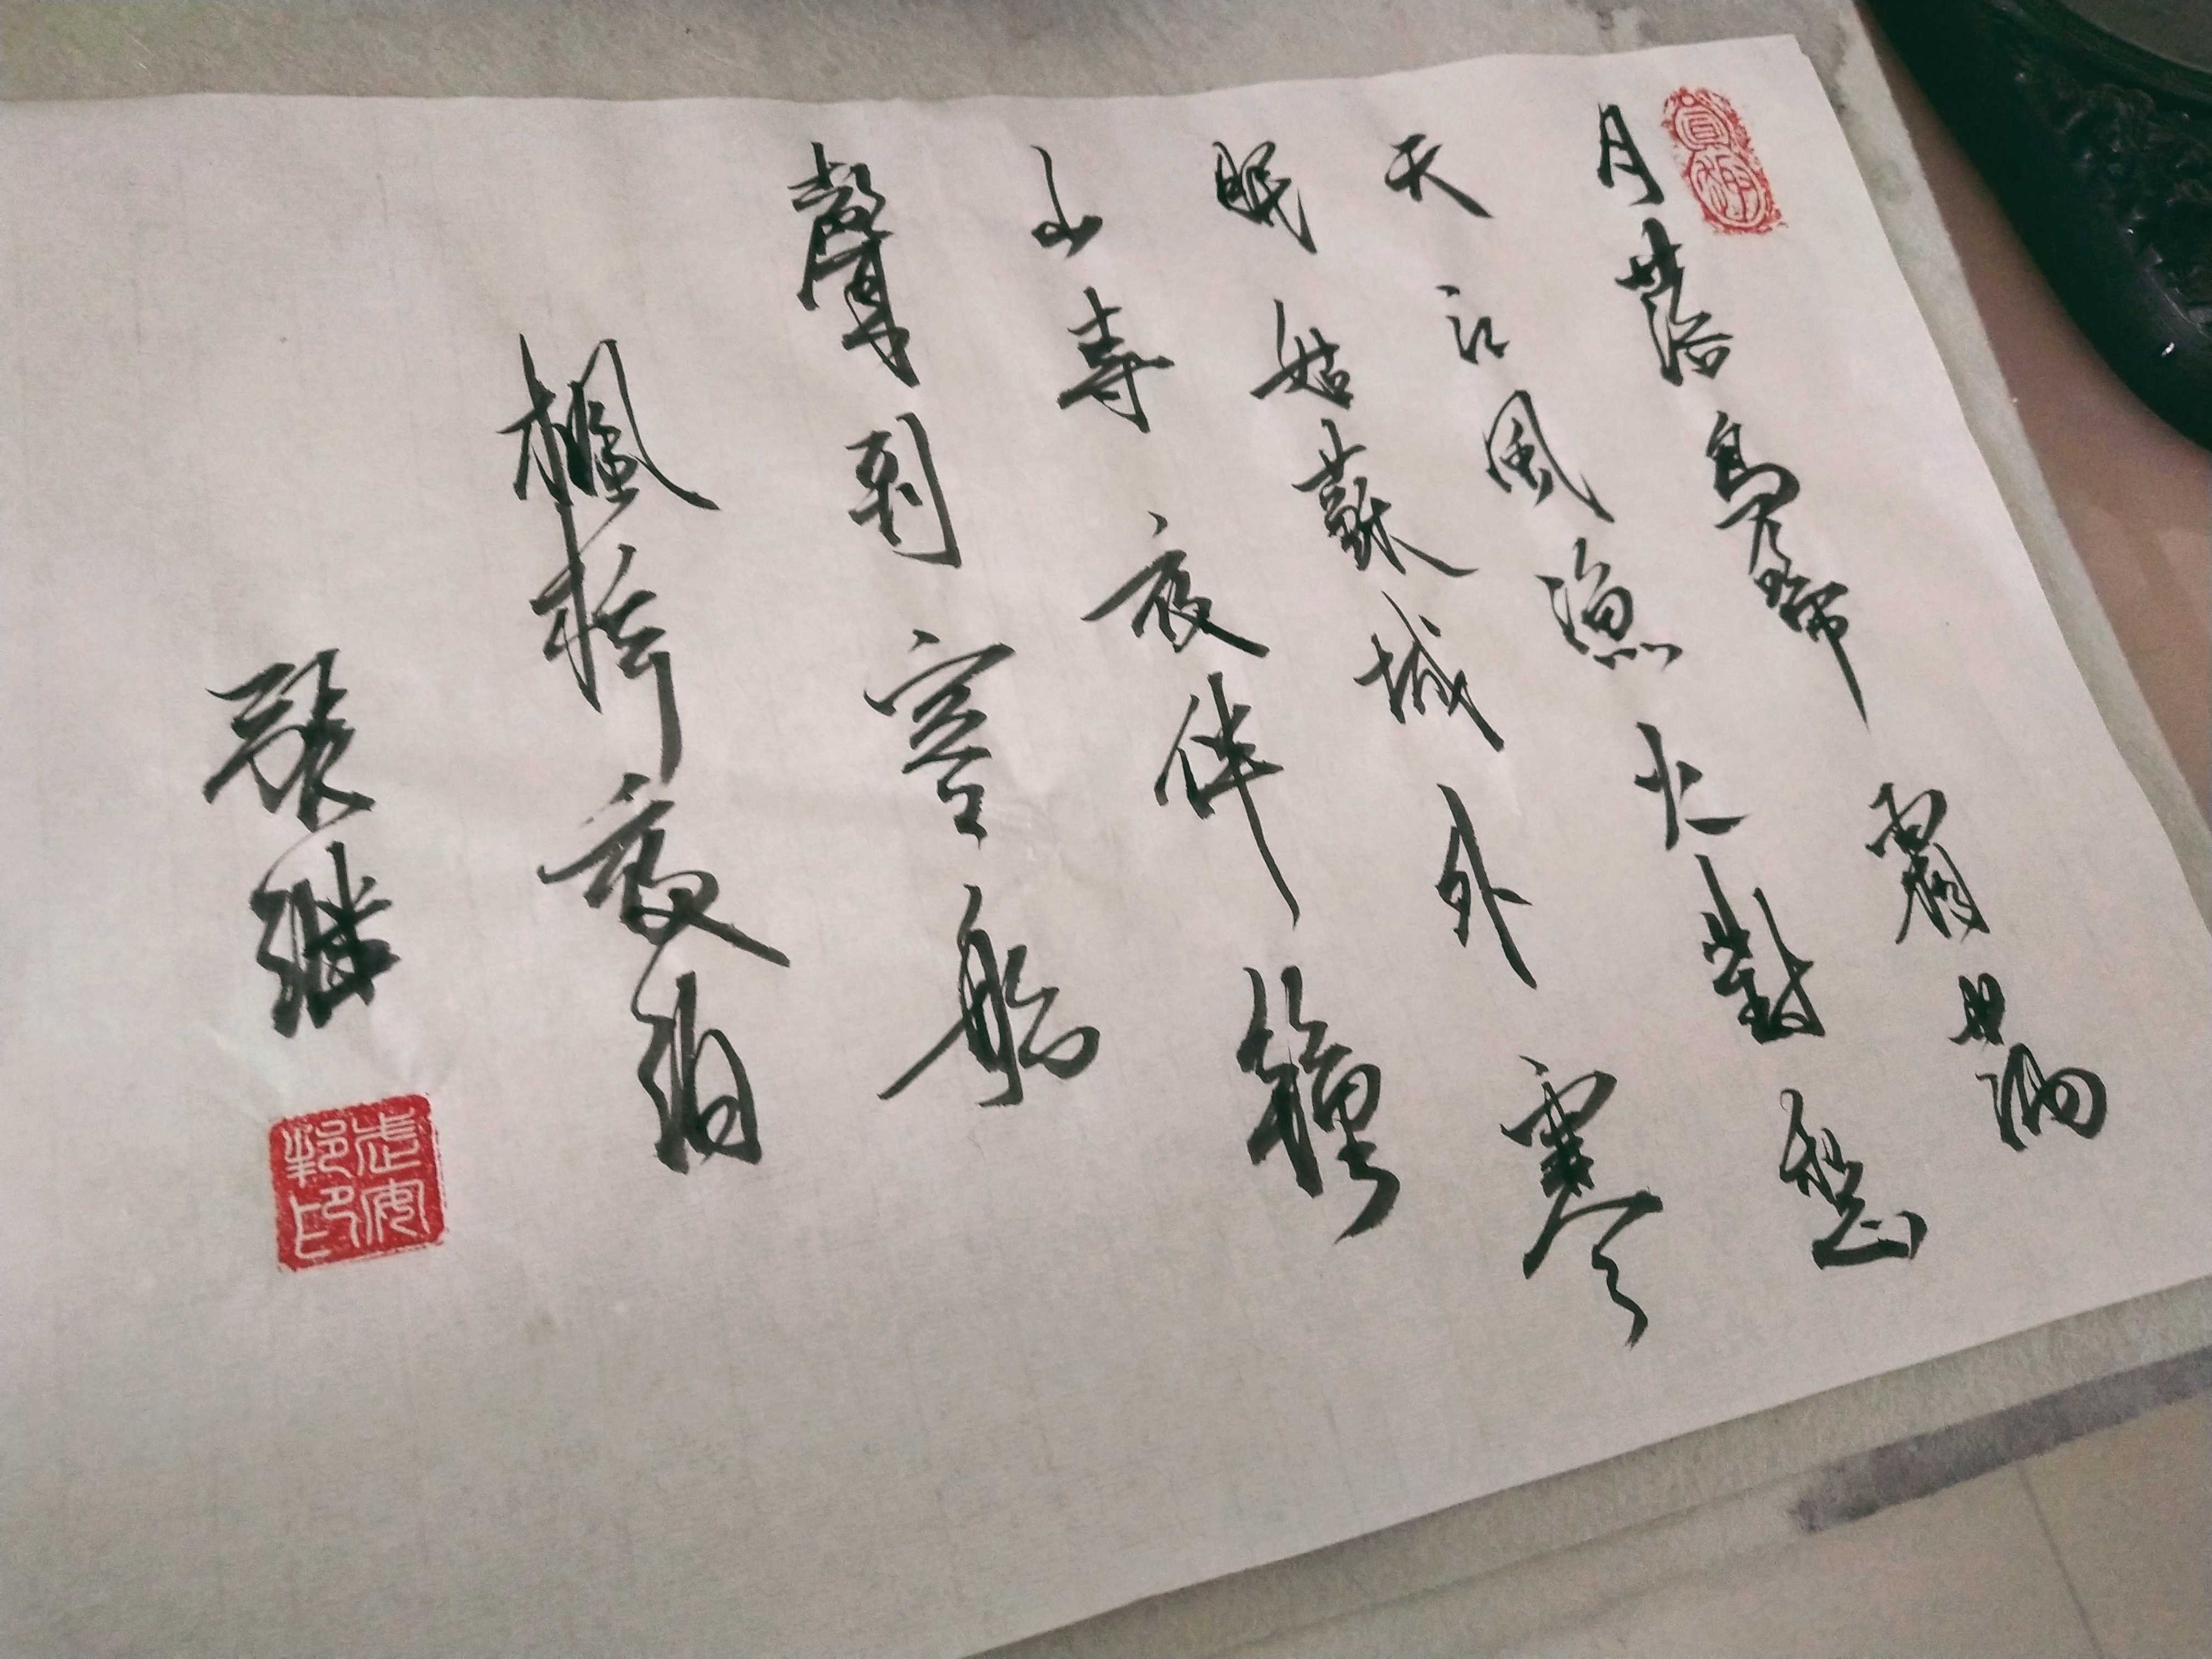 月落烏啼霜滿
天江風漁火對愁
眠姑蘇城外寒
山寺夜伴鐘
聲到客船
楓橋夜泊
張继